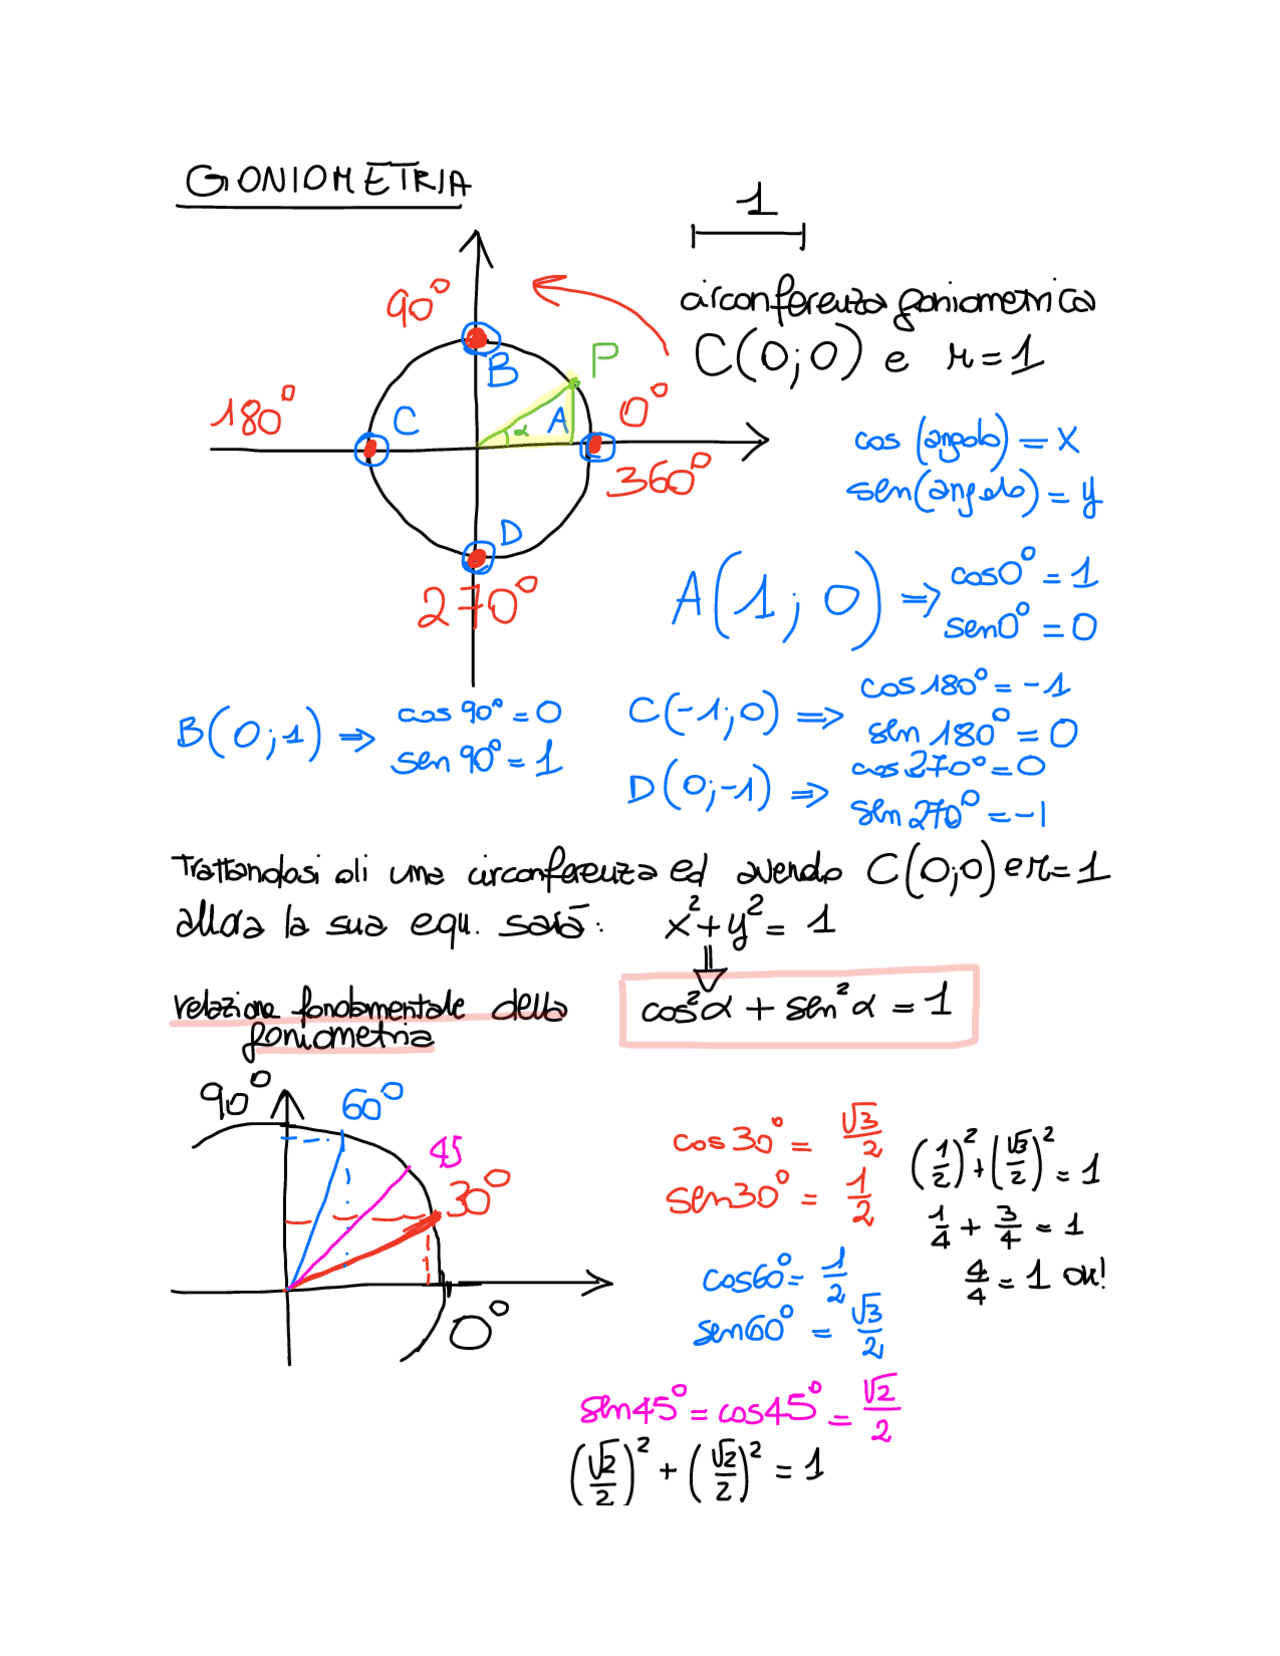 GONIOMETRIA
1
circonferenza goniometrica
C(0;0) e r=1
90°
B
P
180°
C
α
A
0°
360°
D
270°
cos (angolo) = x
sen(angolo) = y
A(1; 0) ⇒ cos0° = 1
sen0° = 0
B(0;1) ⇒ cos 90° = 0
sen 90° = 1
C(-1;0) ⇒ cos 180° = -1
sen 180° = 0
D(0;-1) ⇒ cos 270° = 0
sen 270° = -1
Trattandosi di una circonferenza ed avendo C(0;0) e r=1
allora la sua equ. sarà: x²+y² = 1
⇓
relazione fondamentale della
goniometria
cos²α + sen²α = 1
90°
60°
45
30°
0°
cos30° = √3/2
sen30° = 1/2
(1/2)² + (√3/2)² = 1
1/4 + 3/4 = 1
4/4 = 1 ok!
cos60° = 1/2
sen60° = √3/2
sen45° = cos45° = √2/2
(√2/2)² + (√2/2)² = 1